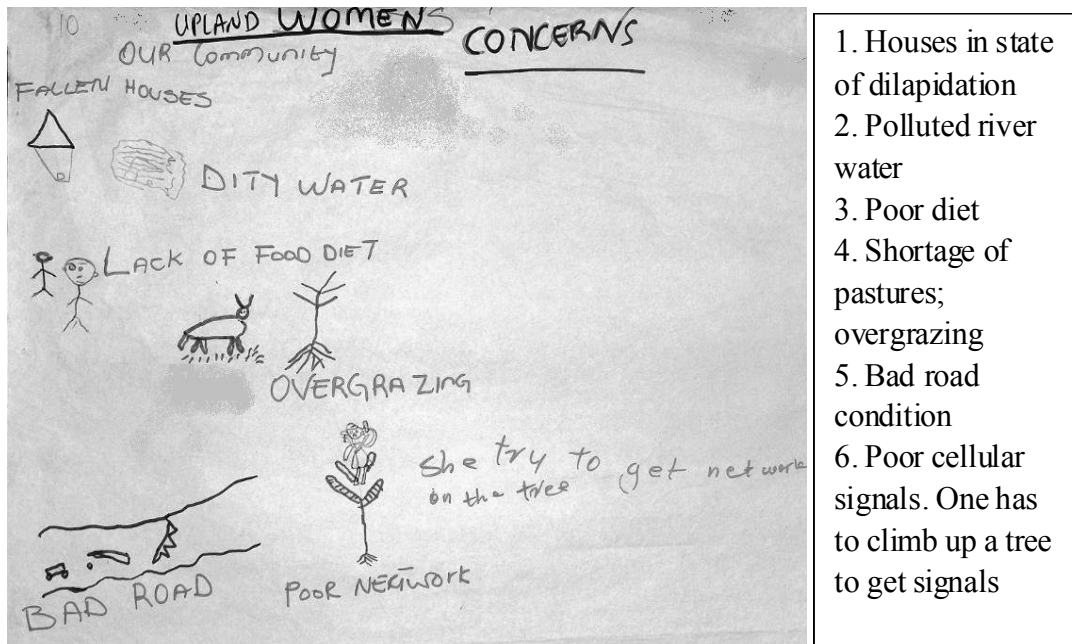 10
UPLAND WOMENS
CONCERNS
OUR Community
FALLEN HOUSES
DITY WATER
LACK OF FOOD DIET
OVERGRAZING
She try to get network
on the tree
BAD ROAD
POOR NERTWORK
1. Houses in state
of dilapidation
2. Polluted river
water
3. Poor diet
4. Shortage of
pastures;
overgrazing
5. Bad road
condition
6. Poor cellular
signals. One has
to climb up a tree
to get signals